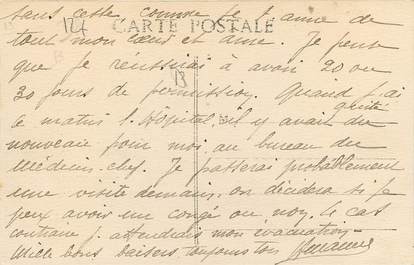 sans cesse comme je t'aime de
124 CARTE POSTALE
tout mon cœur et ame. Je pense
que je reussirai à avoir 20 ou
B
30 jours de permission. Quand j'ai
quitté
ce matin l'Hôpital, il y avait du
nouveau pour moi au bureau du
Médecin-chef. Je passerai probablement
une visite demain, on decidera si je
peux avoir un congé ou non, le cas
contraire j'attendrai mon évacuation-
Mille bons baisers toujours ton